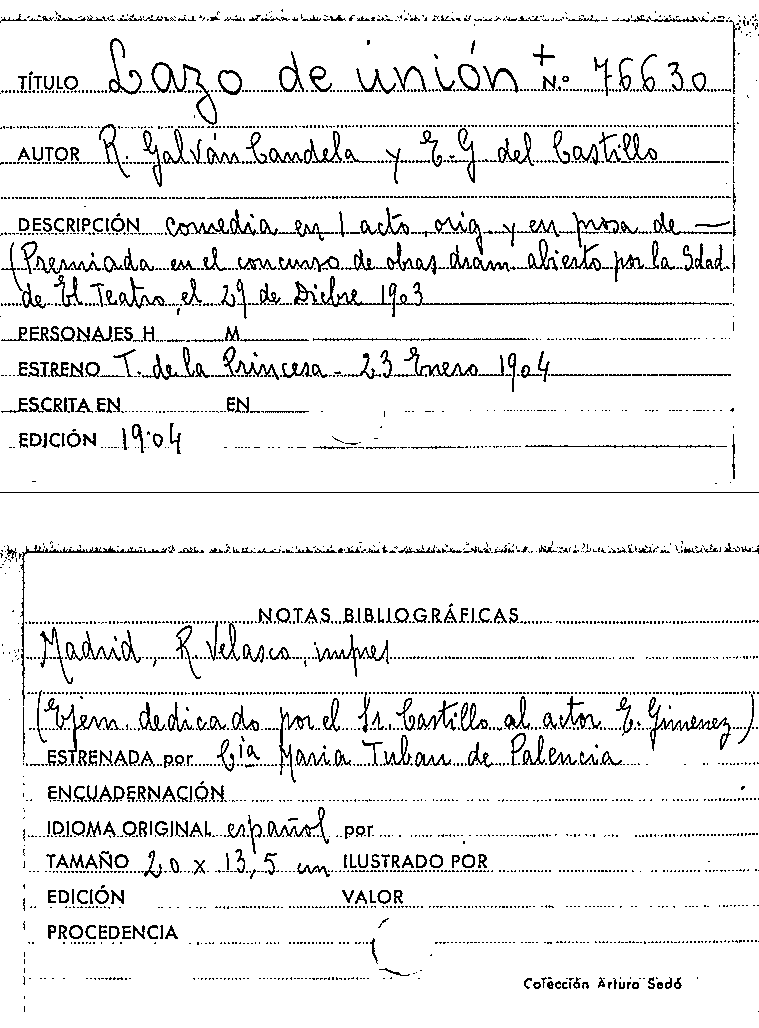 TÍTULO Lazo de unión + N.º 76630
AUTOR R. Galván Candela y E. G del Castillo
DESCRIPCIÓN comedia en 1 acto, orig. y en prosa de —
(Premiada en el concurso de obras dram. abierto por la Sdad.
de El Teatro, el 29 de Dicbre 1903
PERSONAJES H M
ESTRENO T. de la Princesa - 23 Enero 1904
ESCRITA EN EN
EDICIÓN 1904
NOTAS BIBLIOGRÁFICAS
Madrid, R. Velasco, impres
(Ejem. dedicado por el Sr. Castillo al actor E. Gimenez)
ESTRENADA por Cía Maria Tubau de Palencia
ENCUADERNACIÓN
IDIOMA ORIGINAL español por
TAMAÑO 20 x 13,5 cm ILUSTRADO POR
EDICIÓN VALOR
PROCEDENCIA
Colección Arturo Sedó